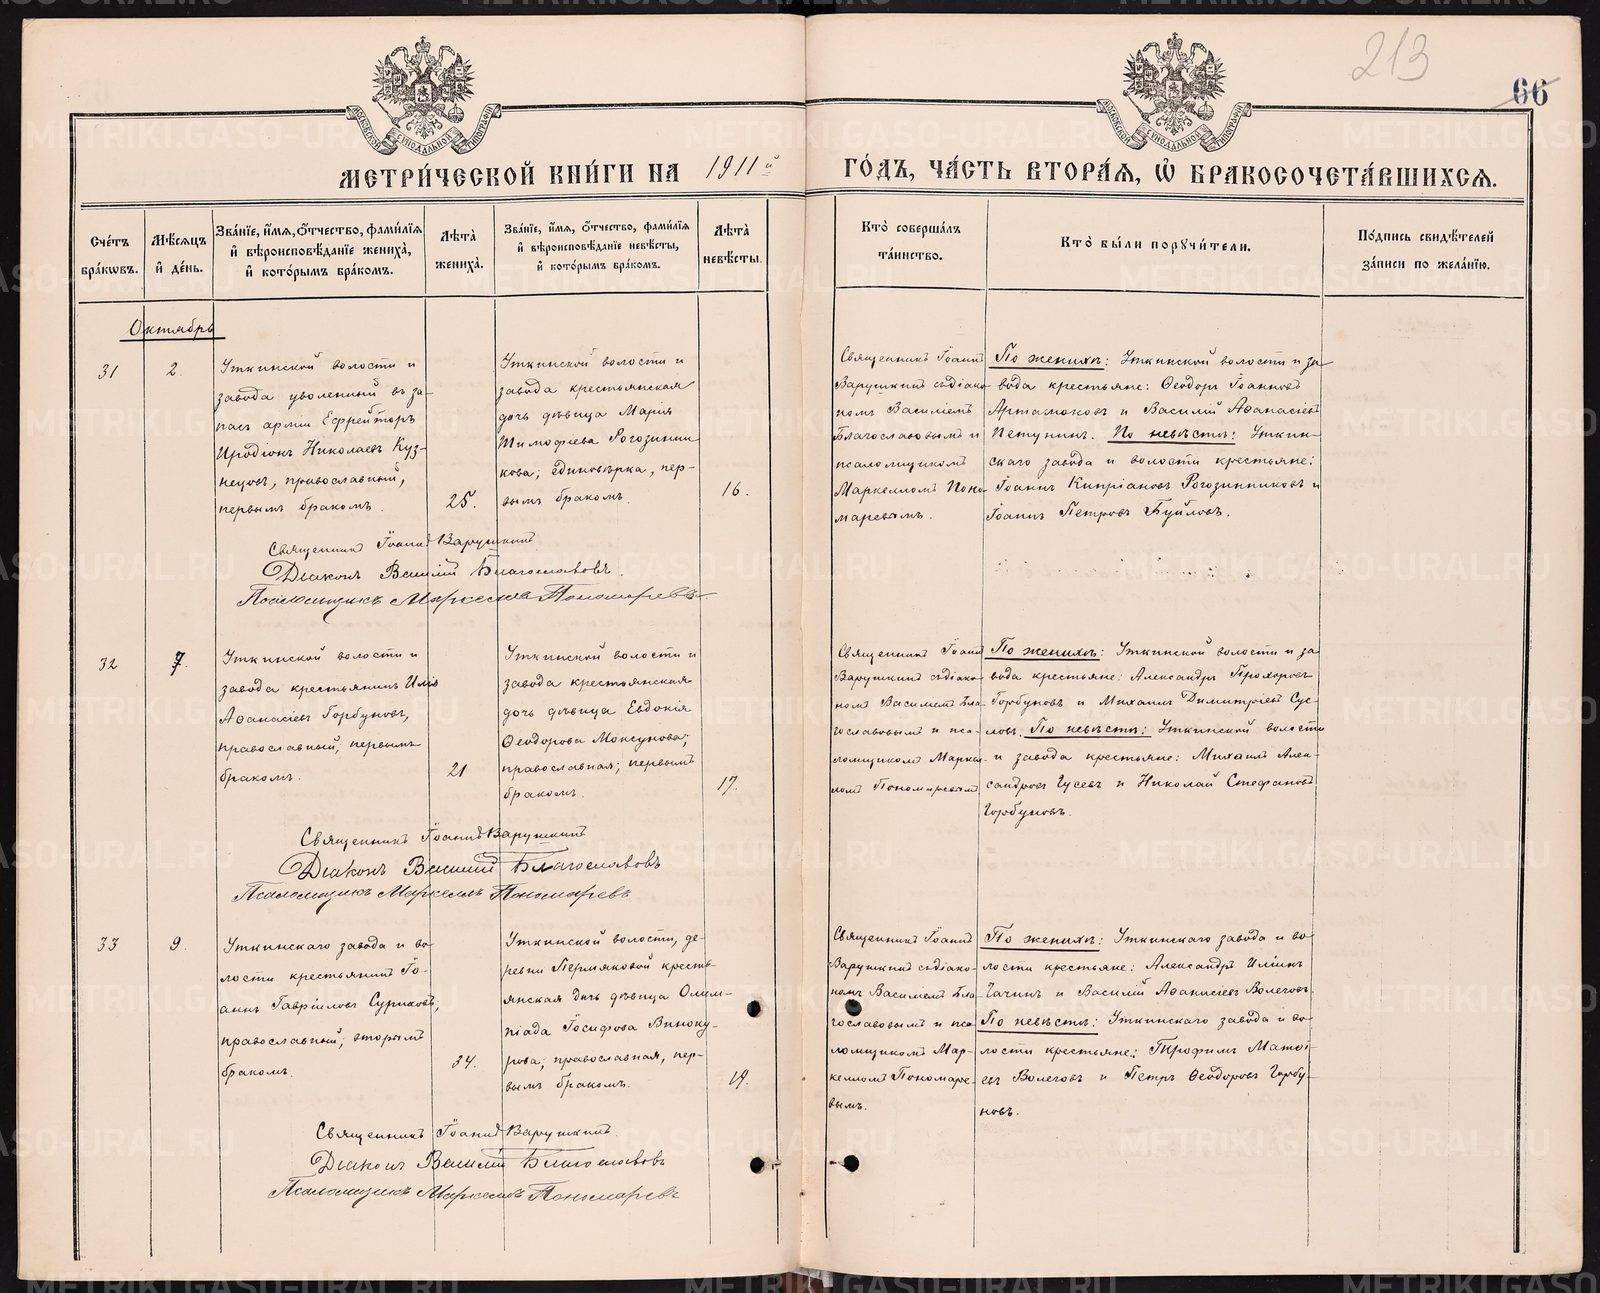 213
66
МОСКОВСКОЙ СѴНОДАЛЬНОЙ ТИПОГРАФІИ
МОСКОВСКОЙ СѴНОДАЛЬНОЙ ТИПОГРАФІИ
МЕТРИ́ЧЕСКОЙ КНИ́ГИ НА 1911й ГО́ДЪ, ЧА́СТЬ ВТОРА́Я, Ѡ҆ БРАКОСОЧЕТА́ВШИХСЯ.
Сче́тъ
бра́ковъ.
Мѣ́сяцъ
и҆ де́нь.
Зва́нїе, и҆́мя, ѻ҆́тчество, фами́лїя
и҆ вѣроисповѣ́данїе жениха̀,
и҆ кото́рымъ бра́комъ.
Лѣ́та
жениха̀.
Зва́нїе, и҆́мя, ѻ҆́тчество, фами́лїя
и҆ вѣроисповѣ́данїе невѣ́сты,
и҆ кото́рымъ бра́комъ.
Лѣ́та
невѣ́сты.
Кто̀ соверша́лъ
та́инство.
Кто̀ бы́ли порꙋчи́тели.
По́дпись свидѣ́телей
за́писи по жела́нїю.
Октябрь
31
2.
Уткинской волости и
завода уволенный въ за-
пасъ арміи Ефрейторъ
Иродіонъ Николаевъ Куз-
нецовъ, православный,
первымъ бракомъ.
25.
Уткинской волости и
завода крестьянская
дочь дѣвица Марія
Тимофіева Рогозинни
кова; единовѣрка, пер-
вымъ бракомъ.
16.
Священникъ Іоаннъ
Варушкинъ съ діако-
номъ Василіемъ
Благославовымъ и
псаломщикомъ
Маркелломъ Поно-
маревымъ.
По женихѣ: Уткинской волости и за-
вода крестьяне: Ѳеодоръ Іоанновъ
Артамоновъ и Василій Аѳанасіевъ
Петунинъ. По невѣстѣ: Уткин-
скаго завода и волости крестьяне:
Іоаннъ Кипріановъ Рогозинниковъ и
Іоаннъ Петровъ Буйловъ.
Священникъ Іоаннъ Варушкинъ
Діаконъ Василій Благославовъ.
Псаломщикъ Маркеллъ Пономаревъ
32
7.
Уткинской волости и
завода крестьянинъ Илія
Аѳанасіевъ Горбуновъ,
православный, первымъ
бракомъ.
21
Уткинской волости и
завода крестьянская
дочь дѣвица Евдокія
Ѳеодорова Моксунова;
православная; первымъ
бракомъ.
17.
Священникъ Іоаннъ
Варушкинъ съ діако-
номъ Василіемъ Бла-
гославовымъ и пса-
ломщикомъ Маркел-
ломъ Пономаревымъ
По женихѣ: Уткинской волости и за-
вода крестьяне: Александръ Прохоровъ
Горбуновъ и Михаилъ Димитріевъ Сус-
ловъ. По невѣстѣ: Уткинской волости
и завода крестьяне: Михаилъ Алек-
сандровъ Гусевъ и Николай Стефановъ
Горбуновъ.
Священникъ Іоаннъ Варушкинъ
Діаконъ Василій Благославовъ
Псаломщикъ Маркеллъ Пономаревъ
33
9.
Уткинскаго завода и во-
лости крестьянинъ Іо-
аннъ Гавріиловъ Суриковъ,
православный, вторымъ
бракомъ.
34.
Уткинской волости, де-
ревни Пермяковой кресть-
янская дочь дѣвица Олим-
піада Іосифова Виноку-
рова, православная, пер-
вымъ бракомъ.
19.
Священникъ Іоаннъ
Варушкинъ съ діако-
номъ Василіемъ Бла-
гославовымъ и пса-
ломщикомъ Мар-
келломъ Пономаре-
вымъ.
По женихѣ: Уткинскаго завода и во-
лости крестьяне: Александръ Иліинъ
Гачинъ и Василій Аѳанасіевъ Волеговъ.
По невѣстѣ: Уткинскаго завода и во-
лости крестьяне: Трофимъ Матѳі-
евъ Волеговъ и Петръ Ѳеодоровъ Горбу-
новъ.
Священникъ Іоаннъ Варушкинъ.
Діаконъ Василій Благославовъ
Псаломщикъ Маркеллъ Пономаревъ
METRIKI.GASO-URAL.RU